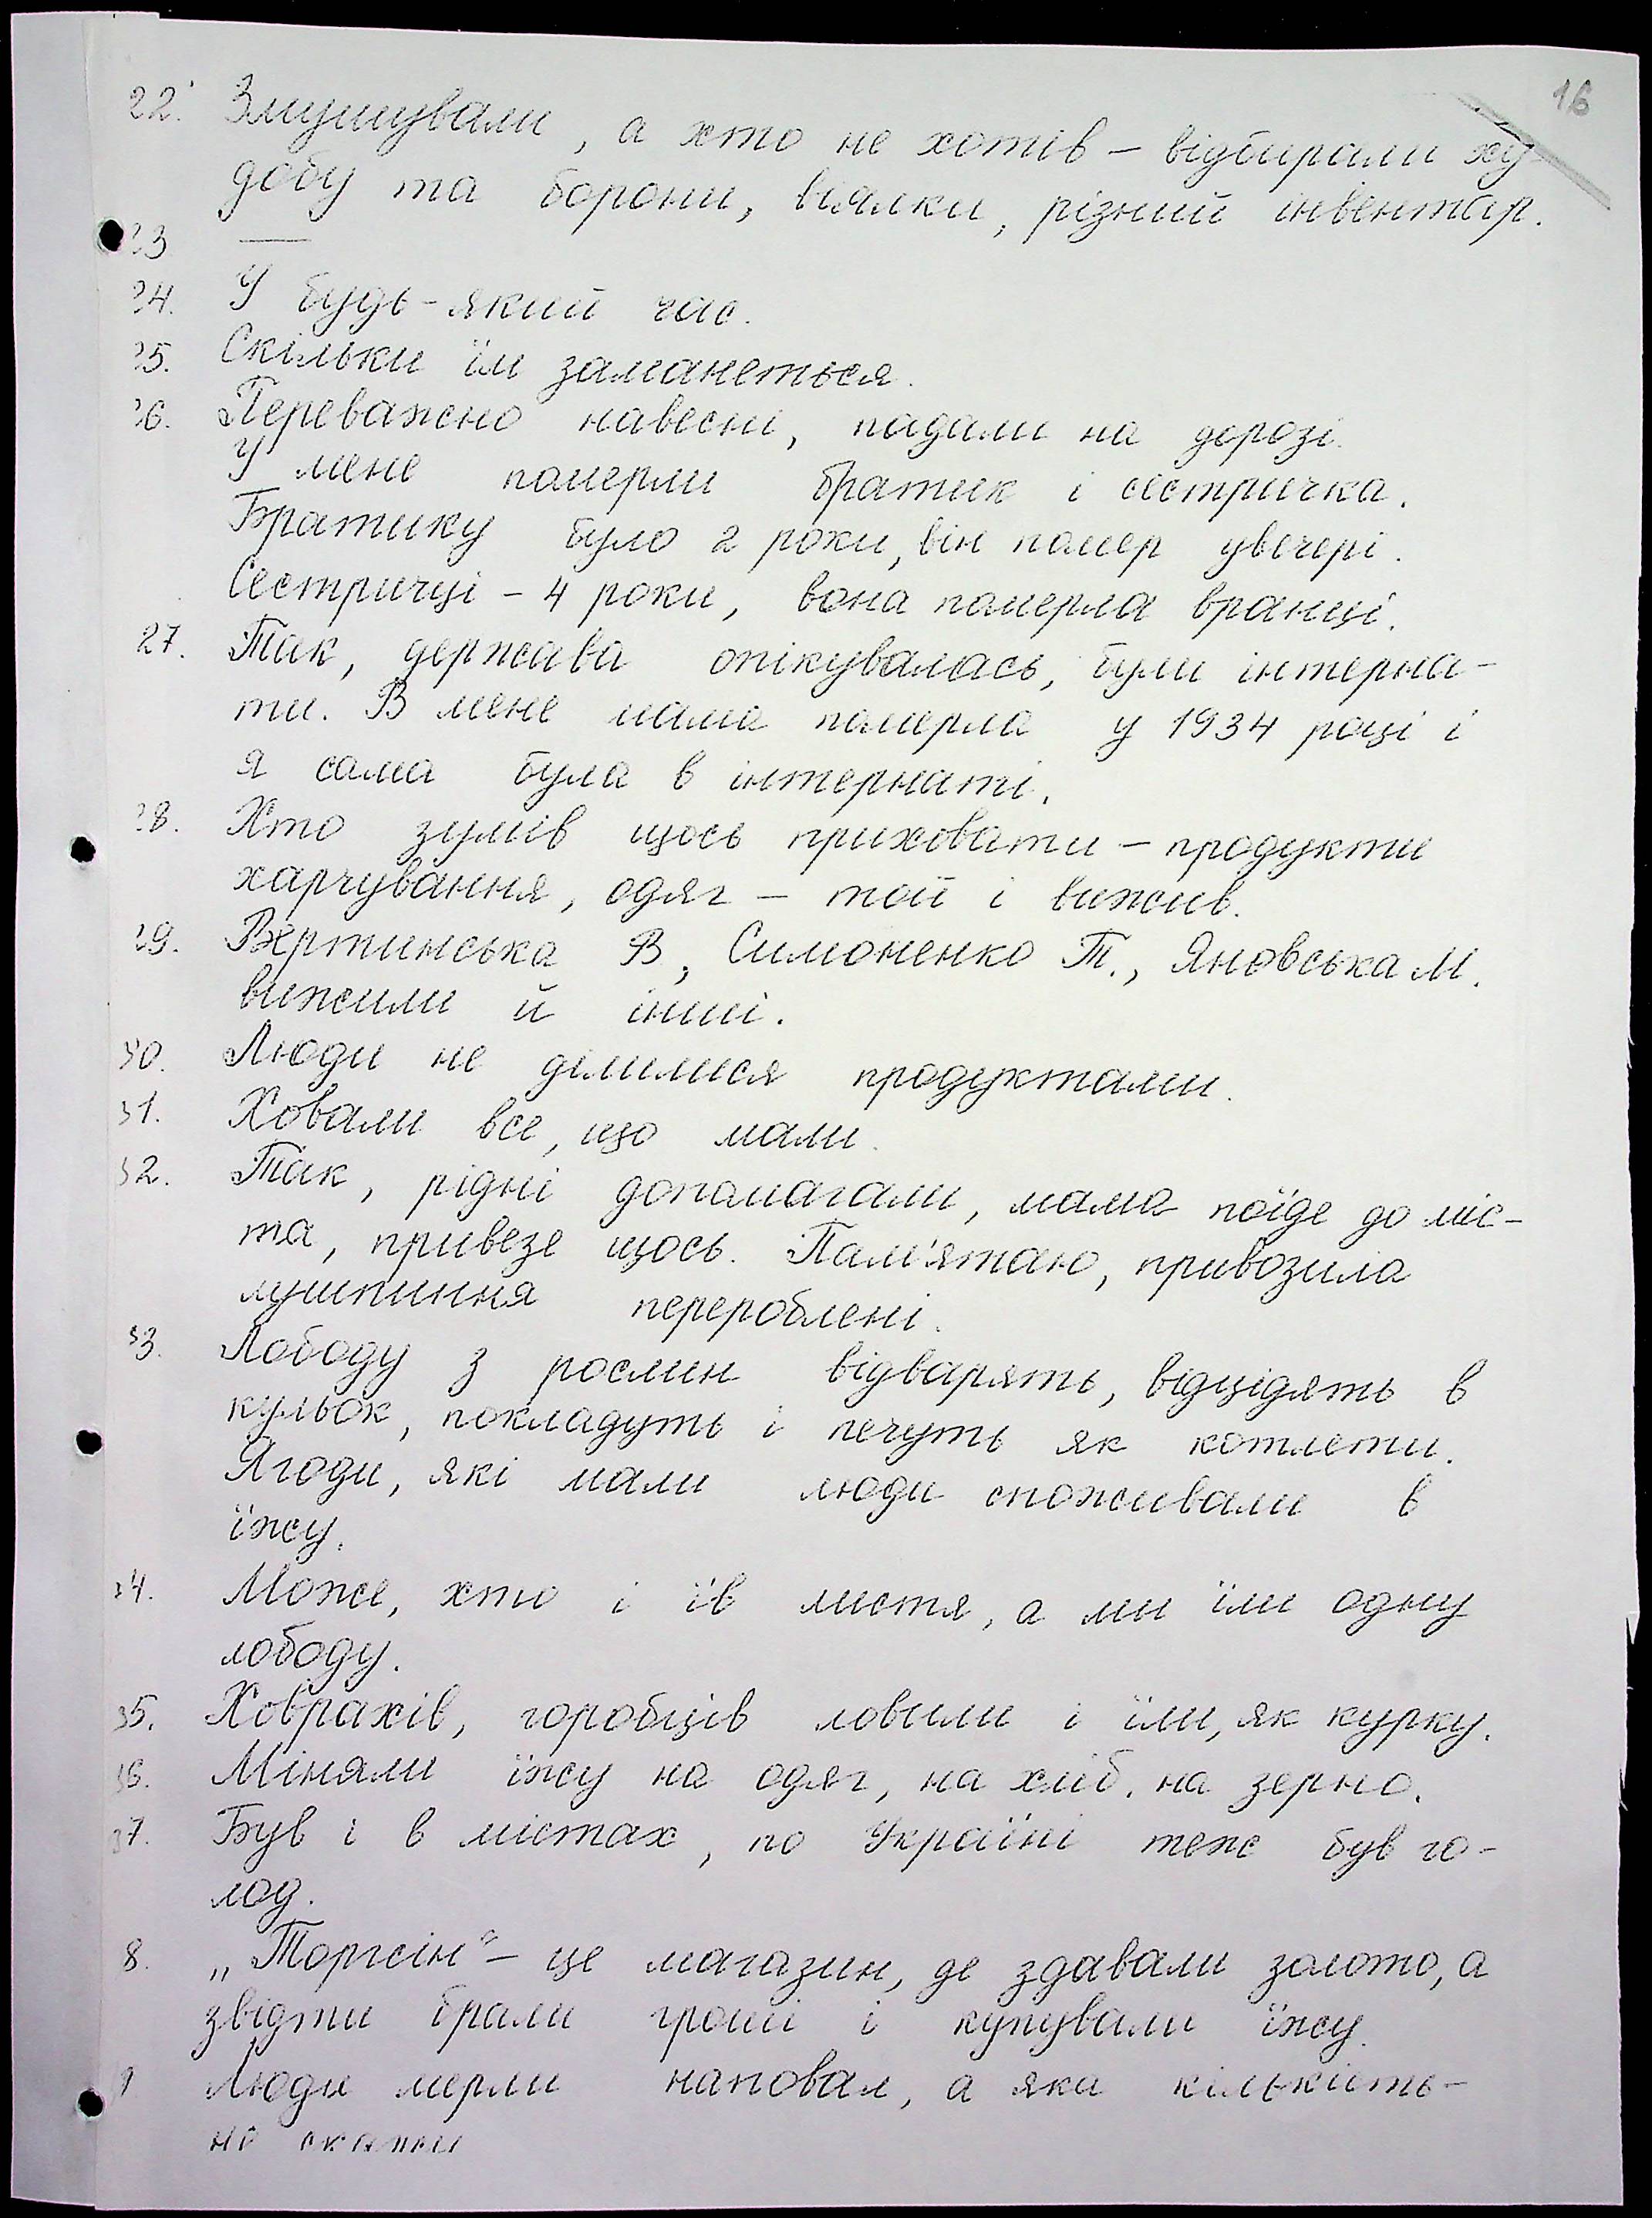 16
22. Змушували, а хто не хотів – відбирали ху-
добу та борони, віялки, різний інвентар.
23 —
24. У будь-який час.
25. Скільки їм заманеться.
26. Переважно навесні, падали на дорозі.
У мене померли братик і сестричка.
Братику було 2 роки, він помер увечері.
Сестричці – 4 роки, вона померла вранці.
27. Так, держава опікувалась, були інтерна-
ти. В мене мама померла у 1934 році і
я сама була в інтернаті.
28. Хто зумів щось приховати – продукти
харчування, одяг – той і вижив.
29. Вертинська В, Симоненко Т., Яновська М.
вижили й інші.
30. Люди не ділилися продуктами.
31. Ховали все, що мали.
32. Так, рідні допомагали, мама поїде до міс-
та, привезе щось. Пам'ятаю, привозила
лушпиння перероблені.
33. Лободу з рослин відварять, відцідять в
кульок, покладуть і печуть як котлети.
Ягоди, які мали люди споживали в
їжу.
34. Може, хто і їв листя, а ми їли одну
лободу.
35. Ховрахів, горобців ловили і їли, як курку.
36. Міняли їжу на одяг, на хліб, на зерно.
37. Був і в містах, по Україні теж був го-
лод.
8. „Торгсін“ – це магазин, де здавали золото, а
звідти брали гроші і купували їжу.
9 Люди мерли наповал, а яка кількість –
не скажу